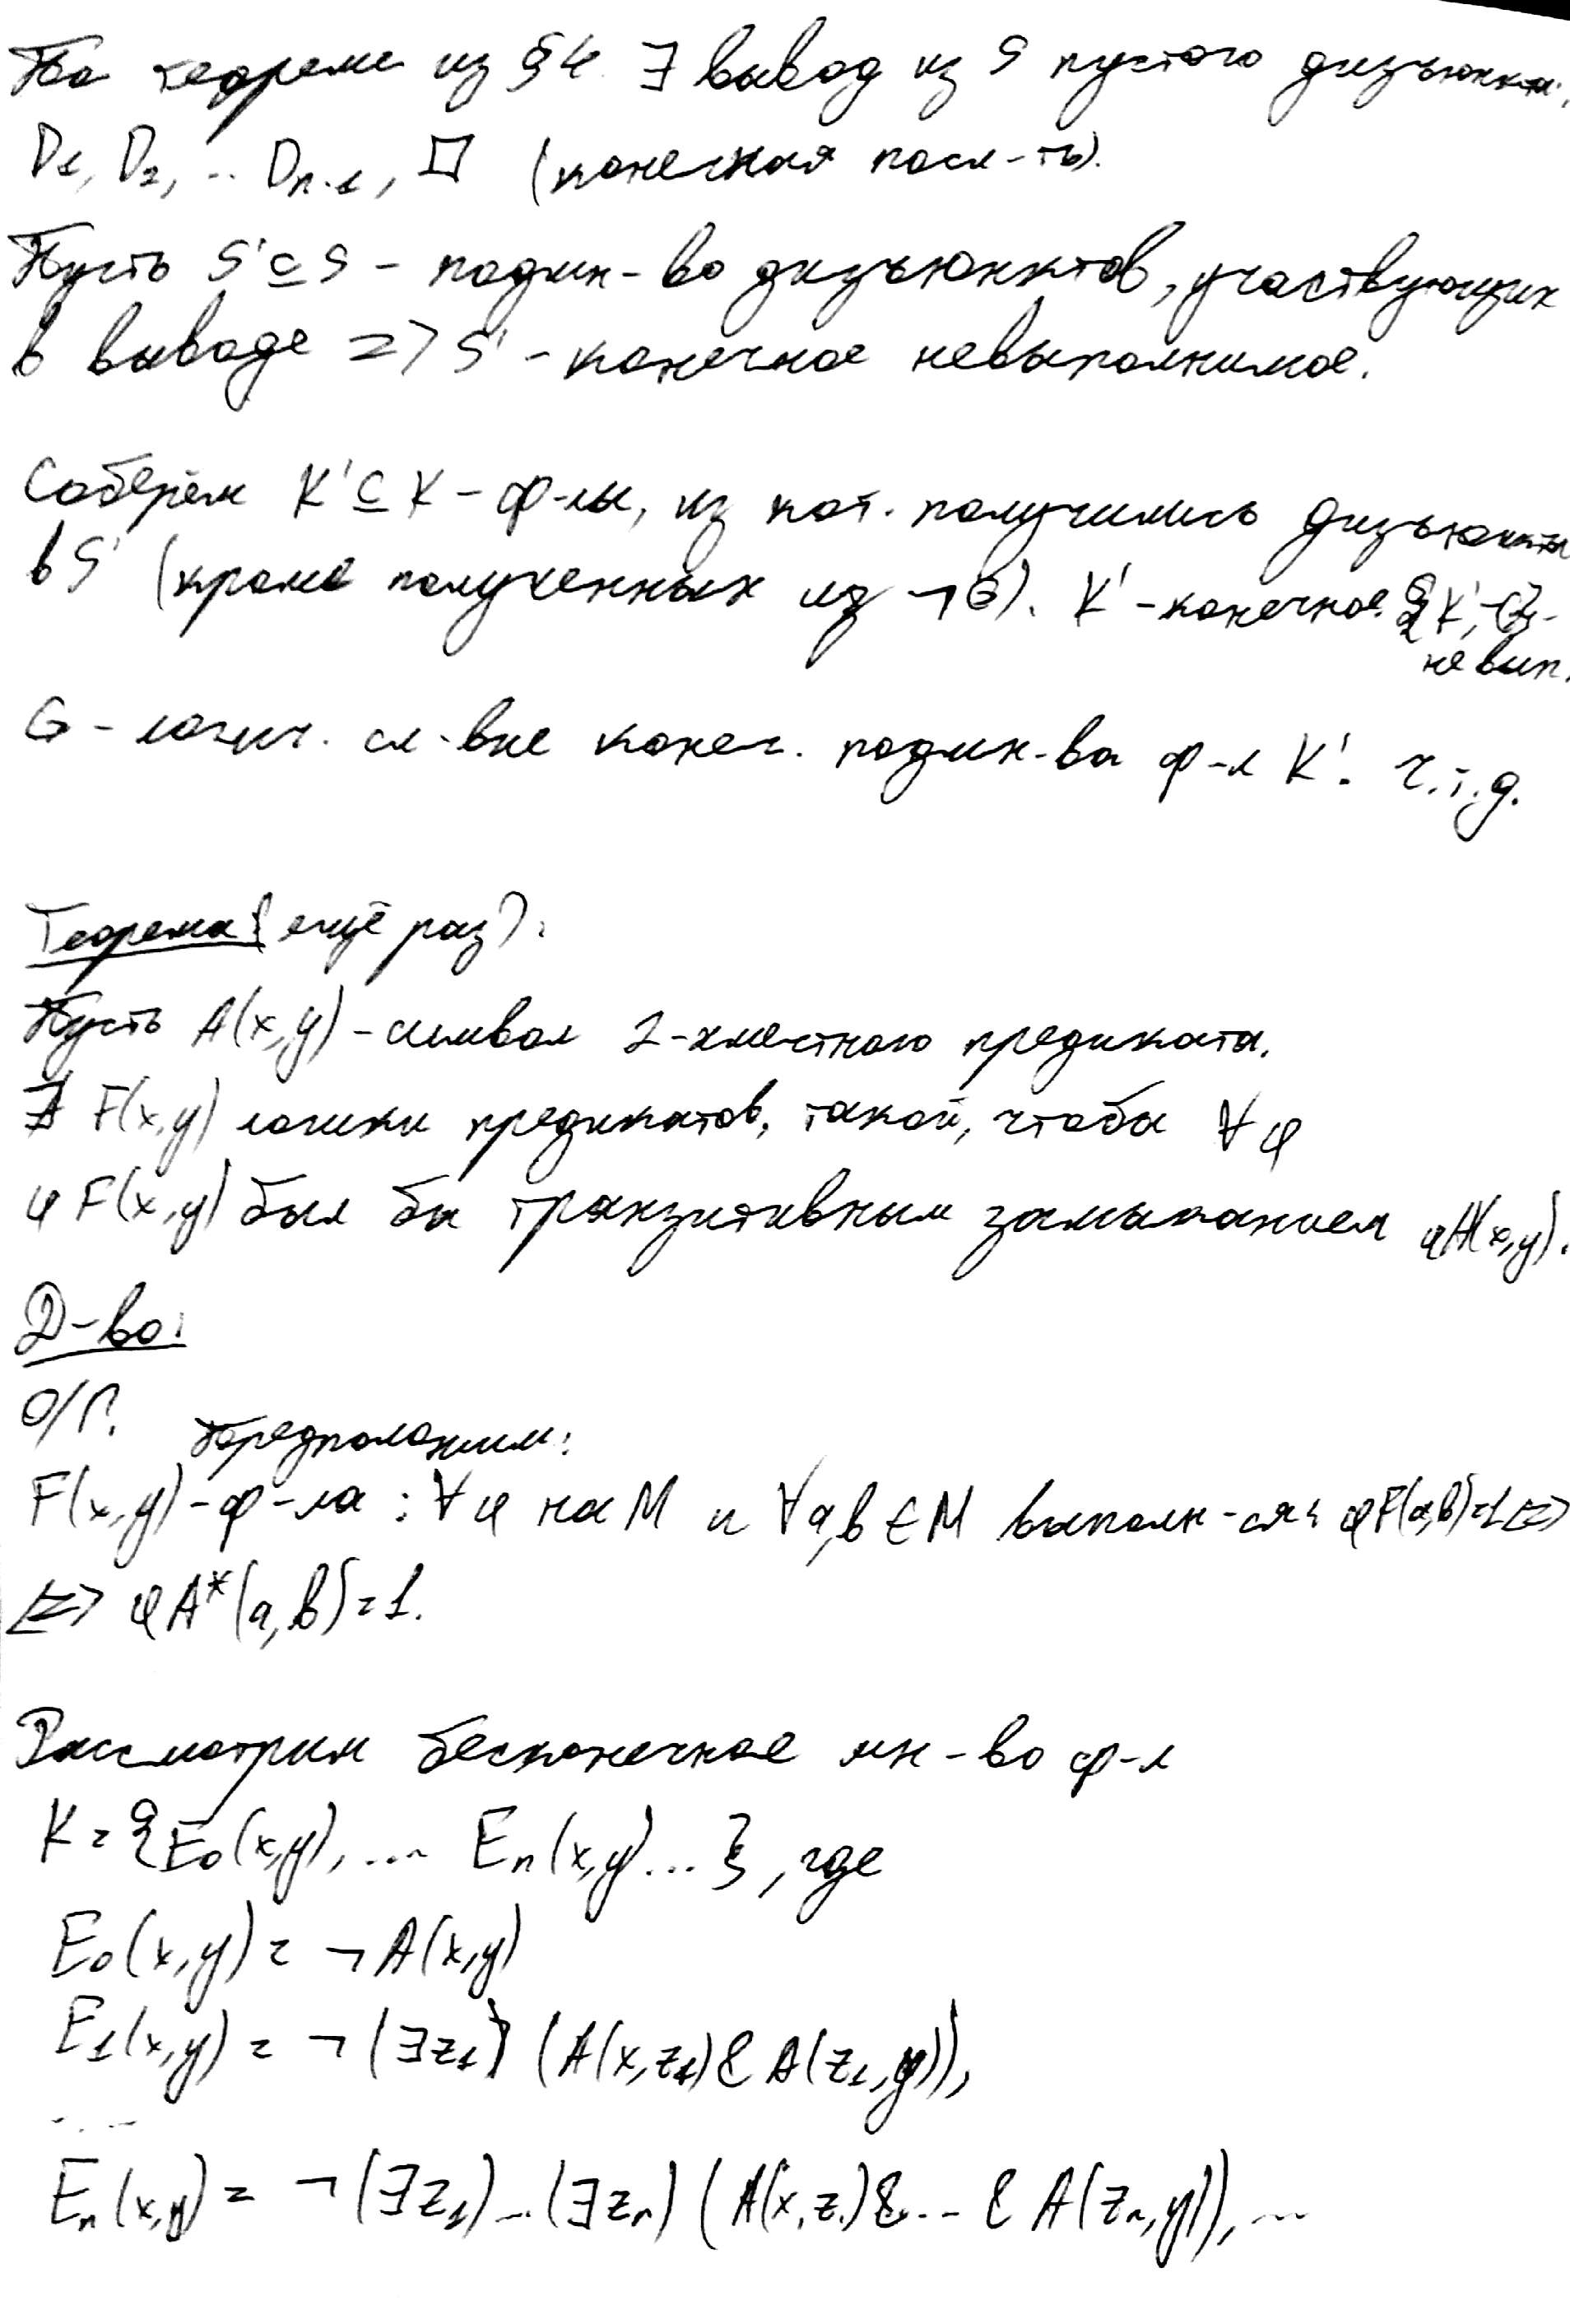 По теореме из §4 ∃ вывод из S пустого дизъюнкта:
D₁, D₂, .. Dₙ₋₁, □ (конечная посл-ть).
Пусть S' ⊆ S - подмн-во дизъюнктов, участвующих
в выводе => S' - конечное невыполнимое.
Соберём K' ⊆ K - ф-лы, из кот. получились дизъюнкты
в S' (кроме полученных из ¬G). K' - конечное. {K', ¬G} -
невып.
G - логич. сл-вие конеч. подмн-ва ф-л K'. ч.т.д.
Теорема (ещё раз):
Пусть A(x,y) - символ 2-хместного предиката.
∄ F(x,y) логики предикатов, такой, чтобы ∀φ
φF(x,y) был бы транзитивным замыканием φA(x,y).
Д-во:
О/П. Предположим:
F(x,y) - ф-ла : ∀φ на M и ∀a,b ∈ M выполн-ся: φF(a,b)=1 <=>
<=> φA*(a,b)=1.
Рассмотрим бесконечное мн-во ф-л
K = {E₀(x,y), ... Eₙ(x,y) ... }, где
E₀(x,y) = ¬A(x,y)
E₁(x,y) = ¬(∃z₁) (A(x,z₁) & A(z₁,y)),
.....
Eₙ(x,y) = ¬(∃z₁)...(∃zₙ) (A(x,z₁) & ... & A(zₙ,y)), ...